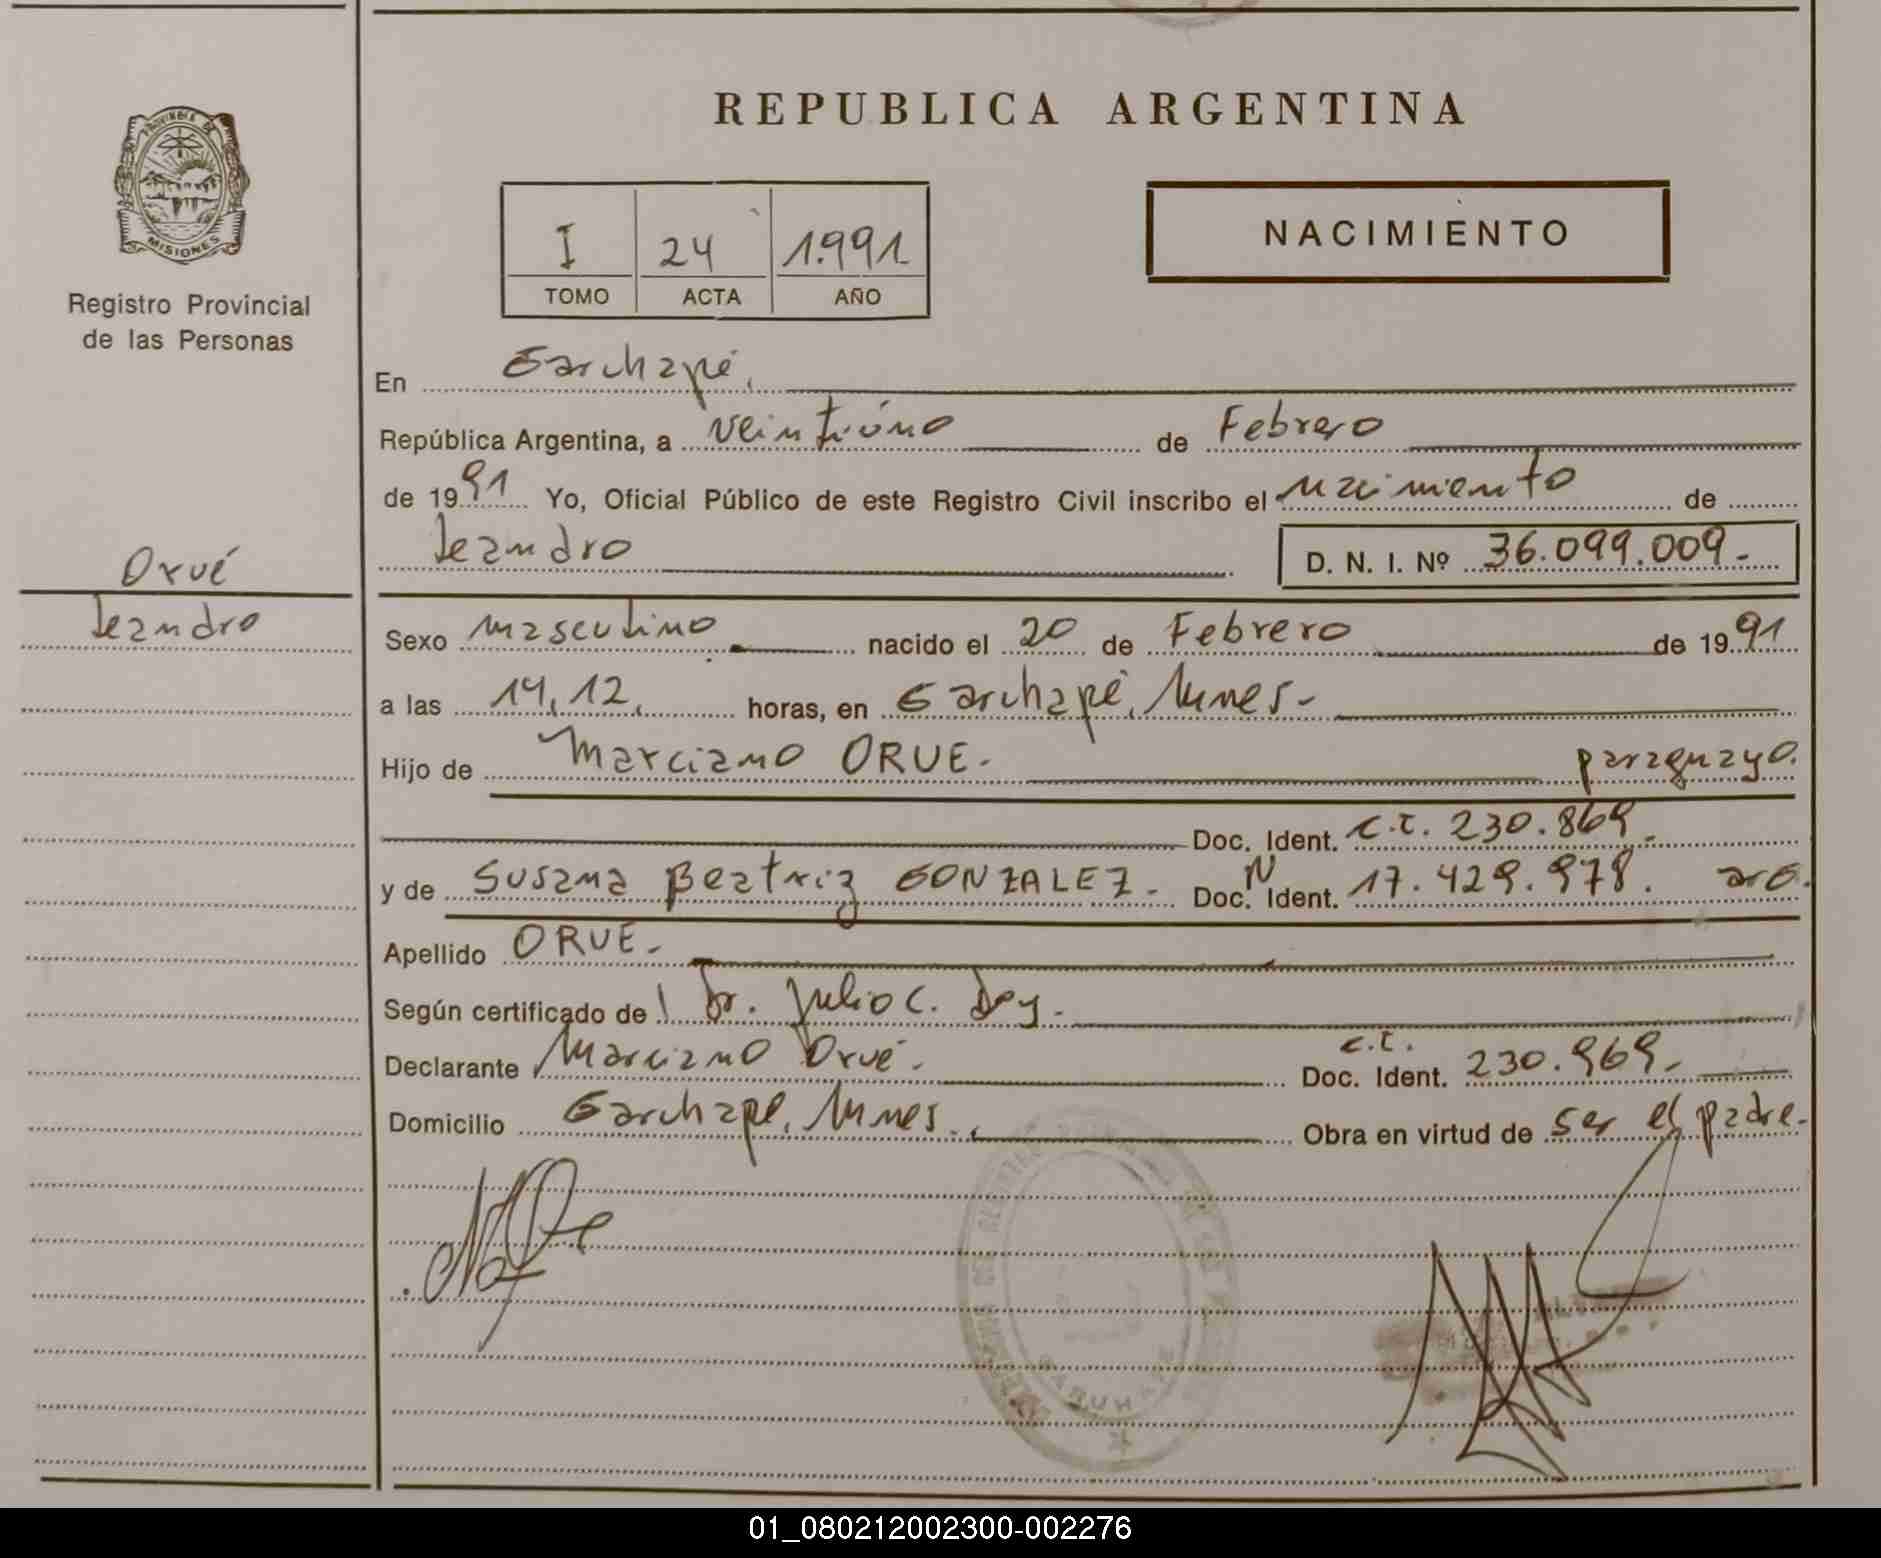 REPUBLICA ARGENTINA
MISIONES
Registro Provincial
de las Personas
I 24 1.991
TOMO ACTA AÑO
NACIMIENTO
En Garuhapé,
República Argentina, a veintiúno de Febrero
de 1991 Yo, Oficial Público de este Registro Civil inscribo el nacimiento de
Leandro D. N. I. Nº 36.099.009.-
Orvé
Leandro
Sexo masculino nacido el 20 de Febrero de 1991
a las 14,12, horas, en Garuhapé, Mnes.-
Hijo de Marciano ORUE.- paraguayo.
Doc. Ident. c.i. 230.869.-
y de Susana Beatriz GONZALEZ.- Doc. Ident. N 17.429.978. arg.
Apellido ORUE.-
Según certificado del Dr. Julio C. Dey.-
Declarante Marciano Orué.- Doc. Ident. c.i. 230.969.-
Domicilio Garuhapé, Mnes., Obra en virtud de ser el padre.-
GARUHAPE
01_080212002300-002276